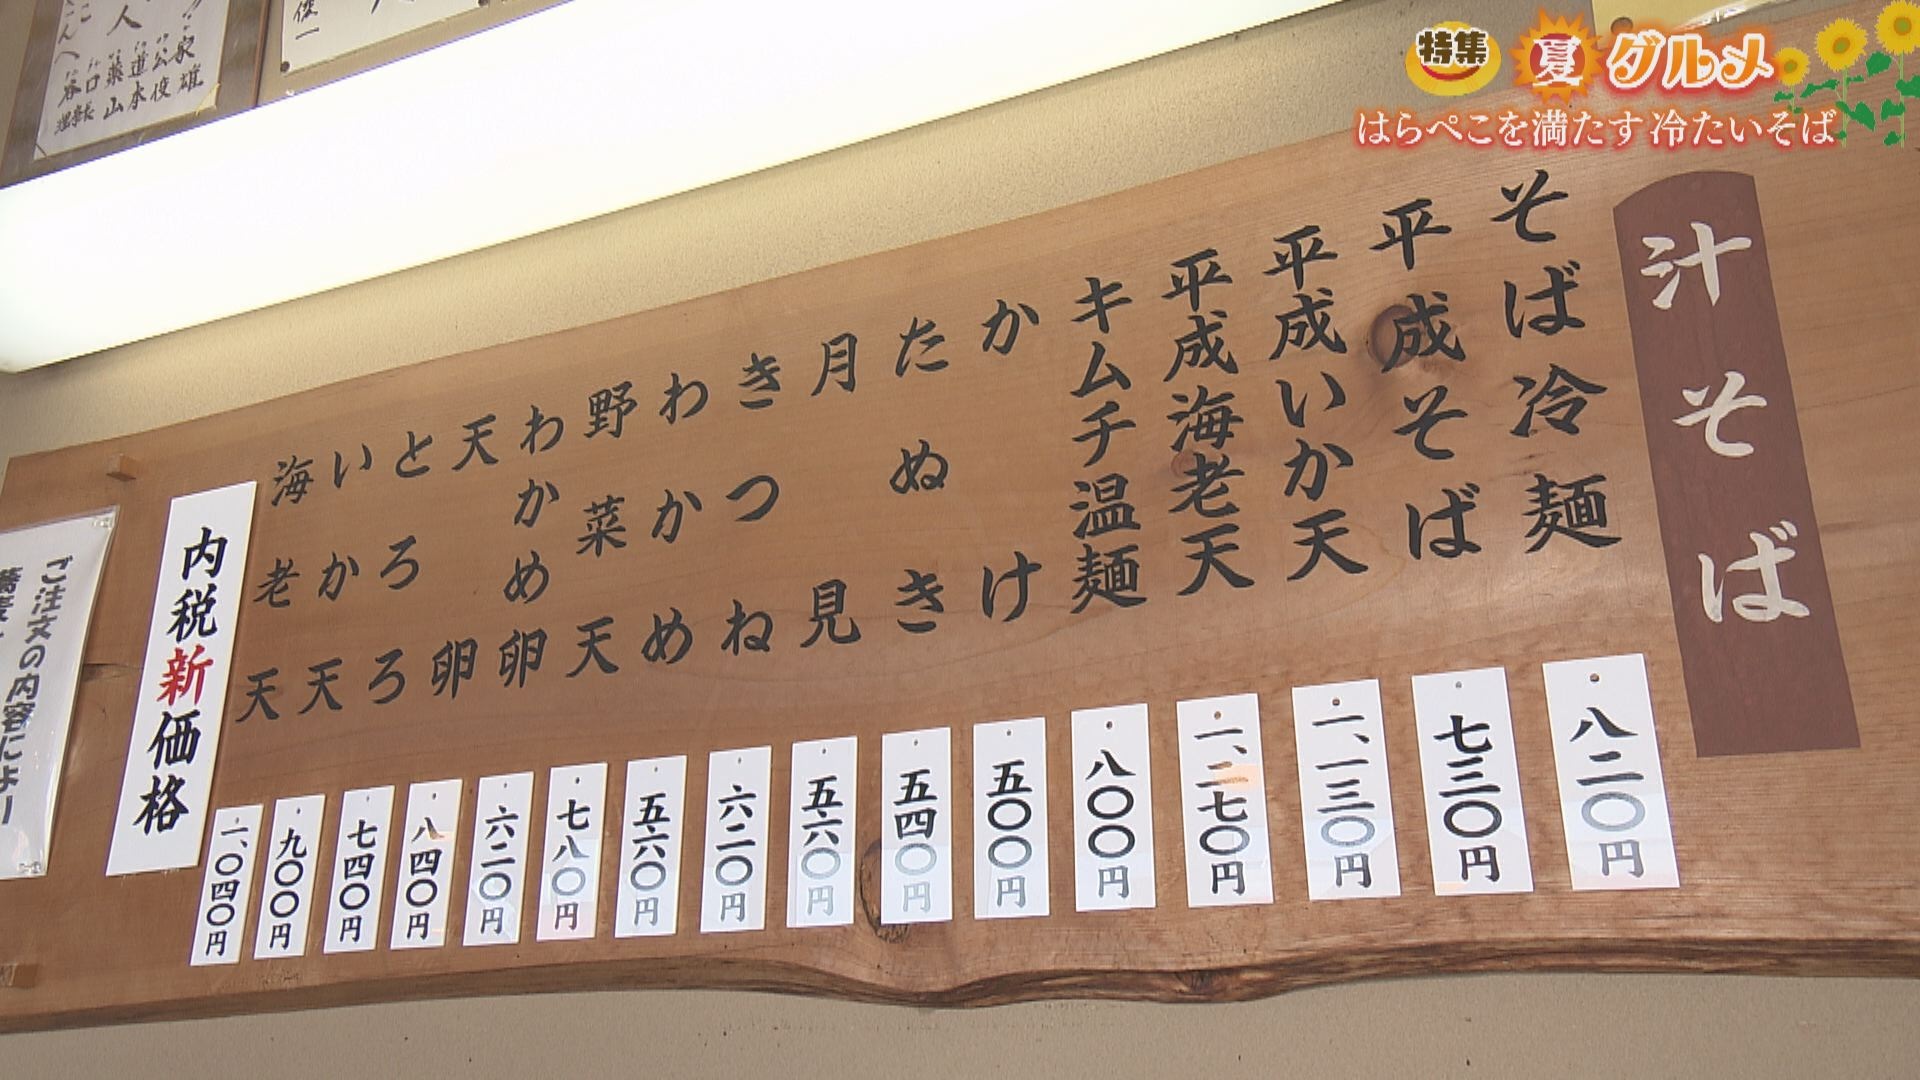 特集 夏グルメ
はらぺこを満たす 冷たいそば
汁そば
そば冷麺 八二〇円
平成そば 七三〇円
平成いか天 一、一三〇円
平成海老天 一、二七〇円
キムチ温麺 八〇〇円
かけ 五〇〇円
たぬき 五四〇円
月見 五六〇円
きつね 六二〇円
わかめ 五六〇円
野菜天 七八〇円
わかめ卵 六二〇円
天卵 八四〇円
とろろ 七四〇円
いか天 九〇〇円
海老天 一、〇四〇円
内税新価格
ご注文の内容により